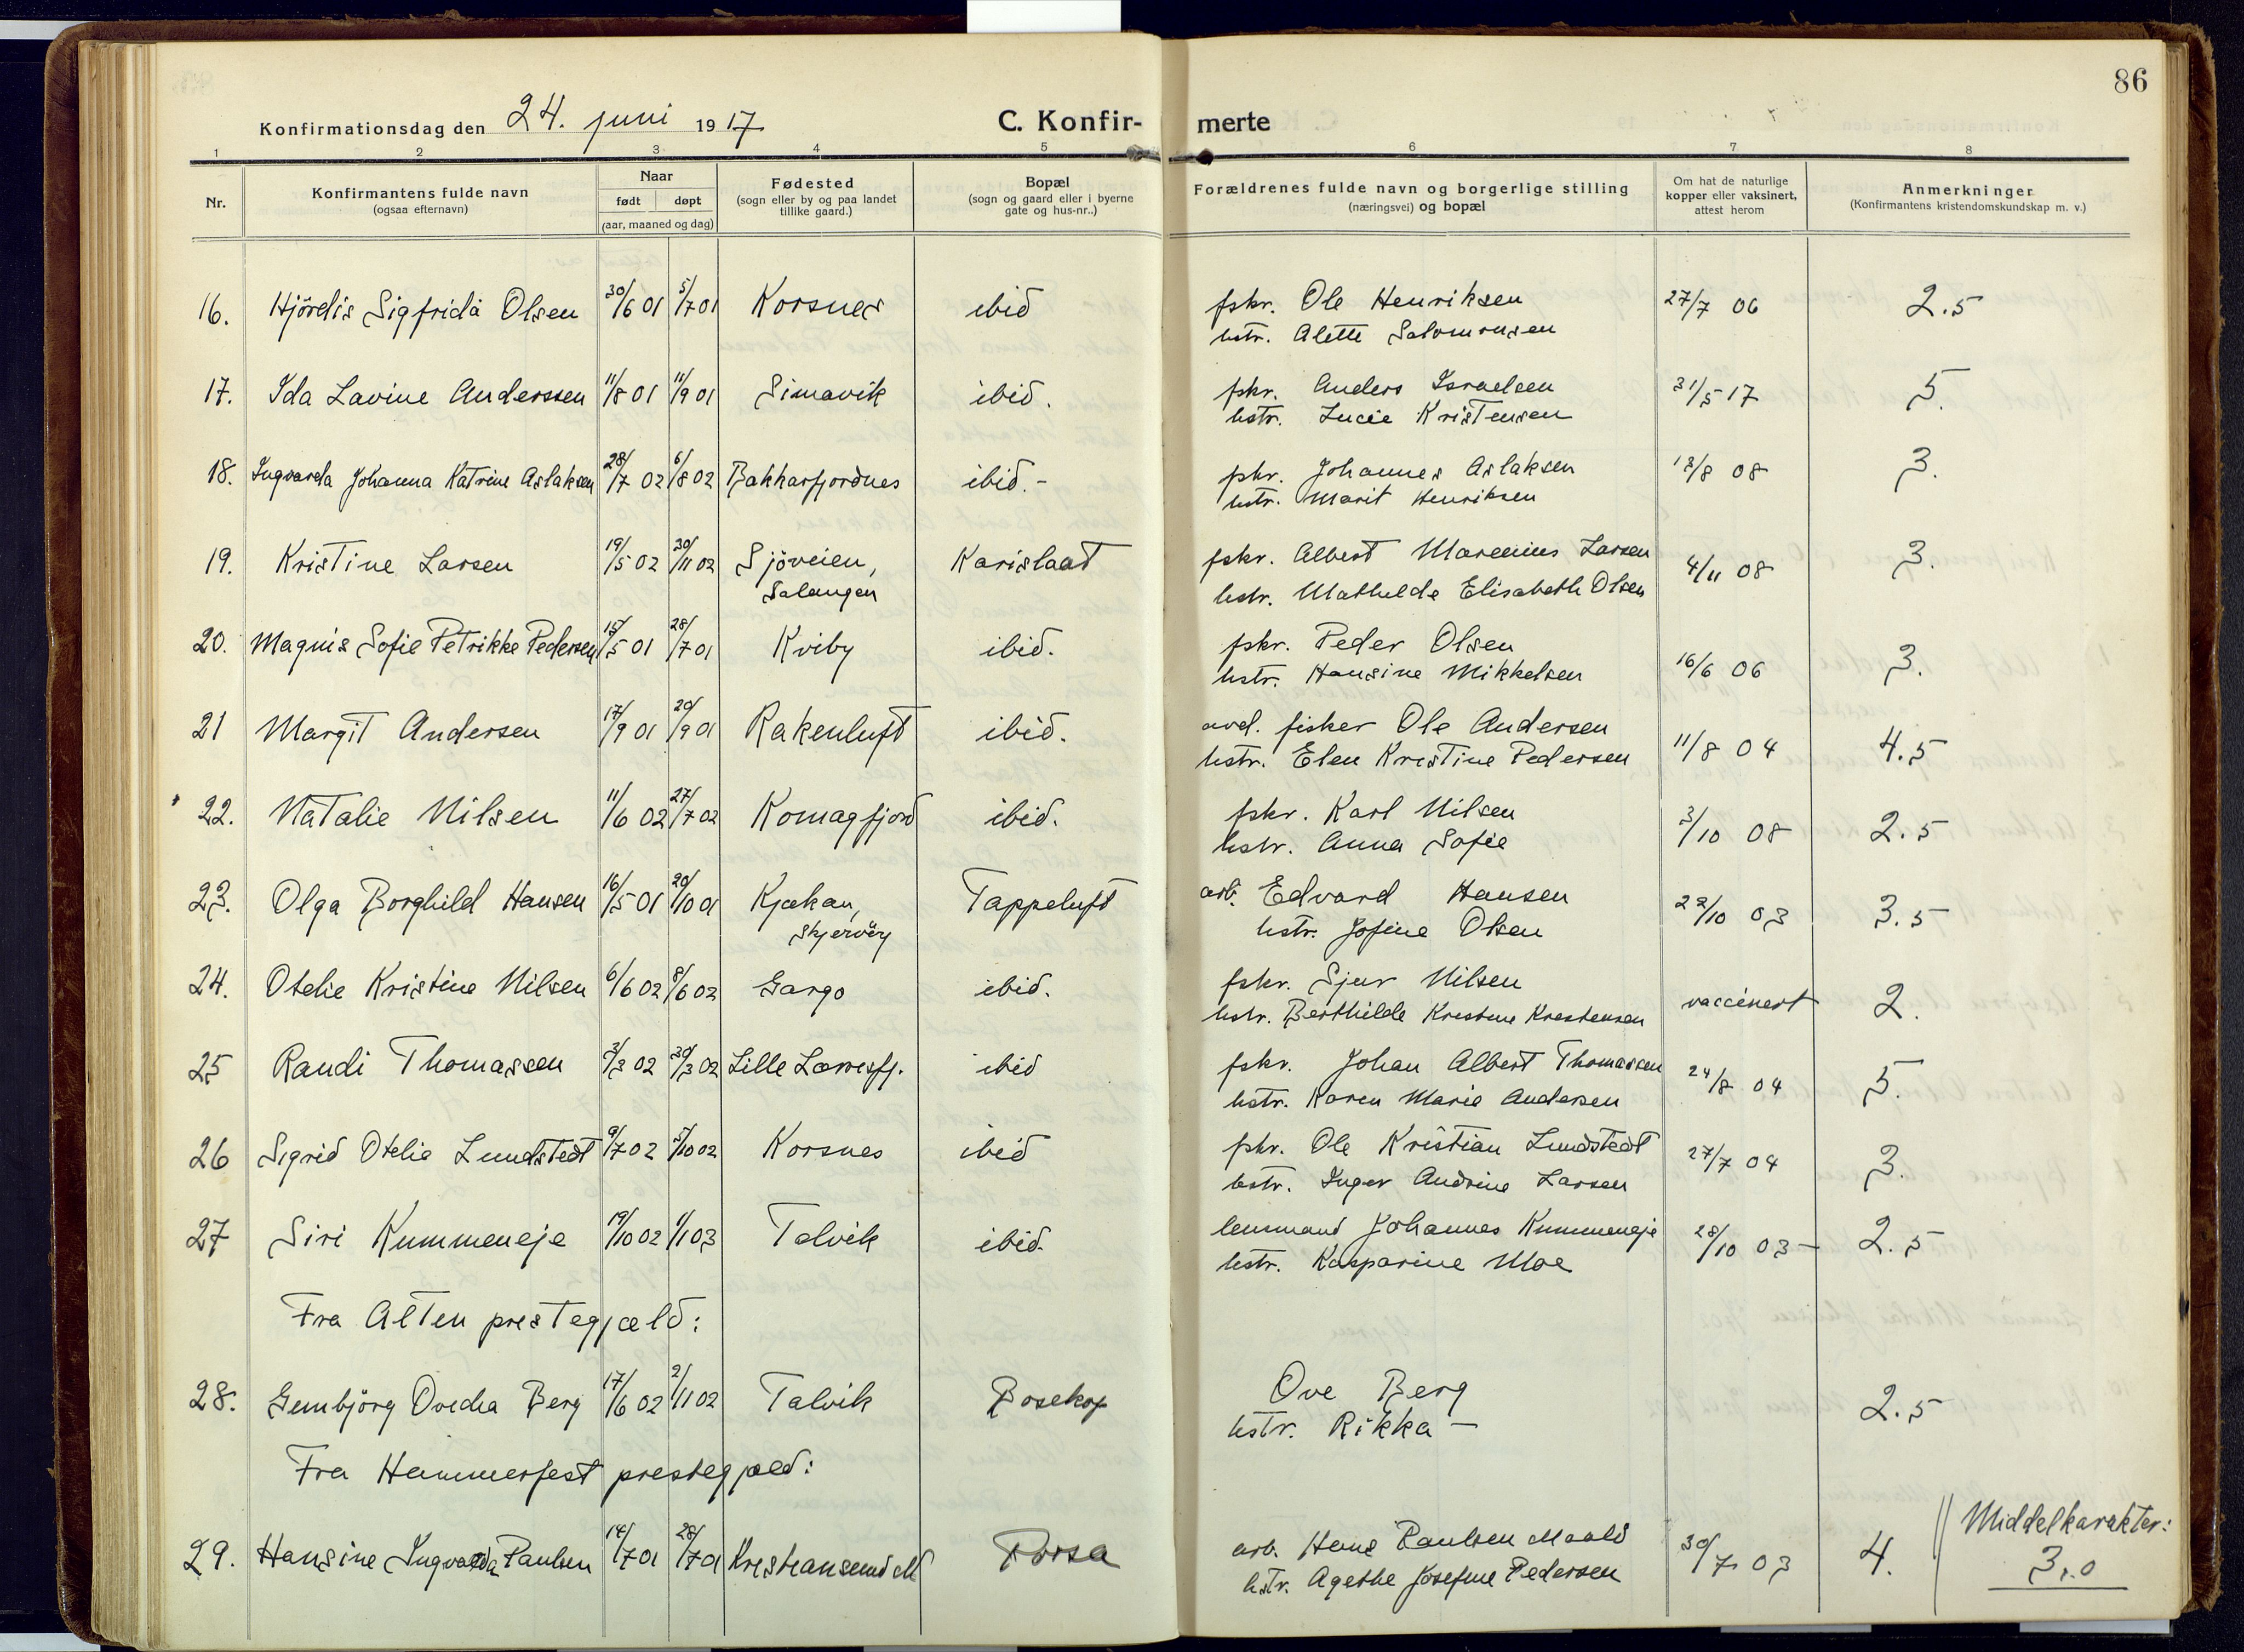 86
Konfirmationsdag den 24. juni 1917
C. Konfir-merte
1 2 3 4 5 6 7 8
Nr.
Konfirmantens fulde navn
(ogsaa efternavn)
Naar
født døpt
(aar, maaned og dag)
Fødested
(sogn eller by og paa landet
tillike gaard.)
Bopæl
(sogn og gaard eller i byerne
gate og hus-nr..)
Forældrenes fulde navn og borgerlige stilling
(næringsvei) og bopæl
Om hat de naturlige
kopper eller vaksinert,
attest herom
Anmerkninger
(Konfirmantens kristendomskundskap m. v.)
16. Hjördis Sigfrida Olsen 30/6 01 5/7 01 Korsnes ibid fskr. Ole Henriksen 27/7 06 2.5
hstr. Alette Salomonsen
17. Ida Lavine Anderssen 11/8 01 11/9 01 Simavik ibid. fskr. Anders Israelsen 31/5 17 5.
hstr. Lucie Kristensen
18. Ingvarda Johanna Katrine Aslaksen 28/7 02 6/8 02 Bakkarfjordnes ibid.- fskr. Johannes Aslaksen 13/8 08 3.
hstr. Marit Henriksen
19. Kristine Larsen 19/5 02 30/11 02 Sjöveien, Karislaat fskr. Albert Marenius Larsen 4/11 08 3.
Salangen hstr. Mathilde Elisabeth Olsen
20. Magnis Sofie Petrikke Pedersen 15/5 01 28/7 01 Kviby ibid. fskr. Peder Olsen 16/6 06 3.
hstr. Hansine Mikkelsen
21 Margit Andersen 17/9 01 29/9 01 Rakenluft ibid. avd. fisker Ole Andersen 11/8 04 4.5
hstr. Elen Kristine Pedersen
22. Natalie Nilsen 11/6 02 27/7 02 Komagfjord ibid. fskr. Karl Nilsen 3/10 08 2.5
hstr. Anna Sofie
23. Olga Borghild Hansen 16/5 01 20/10 01 Kjækan, Tappeluft arb. Edvard Hansen 22/10 03 3.5
Skjervöy hstr. Jofine Olsen
24. Otelie Kristine Nilsen 6/6 02 8/6 02 Gargo ibid. fskr. Sjur Nilsen vaccinert 2.
hstr. Berthilde Kristine Kristensen
25 Randi Thomassen 3/3 02 30/3 02 Lille Lerresfj. ibid fskr. Johan Albert Thomassen 24/8 04 5.
hstr. Karen Marie Andersen
26 Sigrid Otelie Lundstedt 9/7 02 5/10 02 Korsnes ibid fskr. Ole Kristian Lundstedt 27/7 04 3.
hstr. Inger Andrine Larsen
27 Siri Kummeneje 19/10 02 1/1 03 Talvik ibid. lensmand Johannes Kummeneje 28/10 03 - 2.5
hstr. Kasparine Moe
Fra Alten prestegjæld:
28. Gunbjörg Ovedia Berg 17/6 02 2/11 02 Talvik Bosekop Ove Berg 2.5
hstr. Rikka —
Fra Hammerfest prestegjæld:
29. Hansine Ingvalda Paulsen 14/7 01 28/7 01 Kristiansund N Porsa arb. Hans Paulsen Maalö 30/7 03 4.
hstr. Agethe Josefine Pedersen
Middelkarakter:
3,0